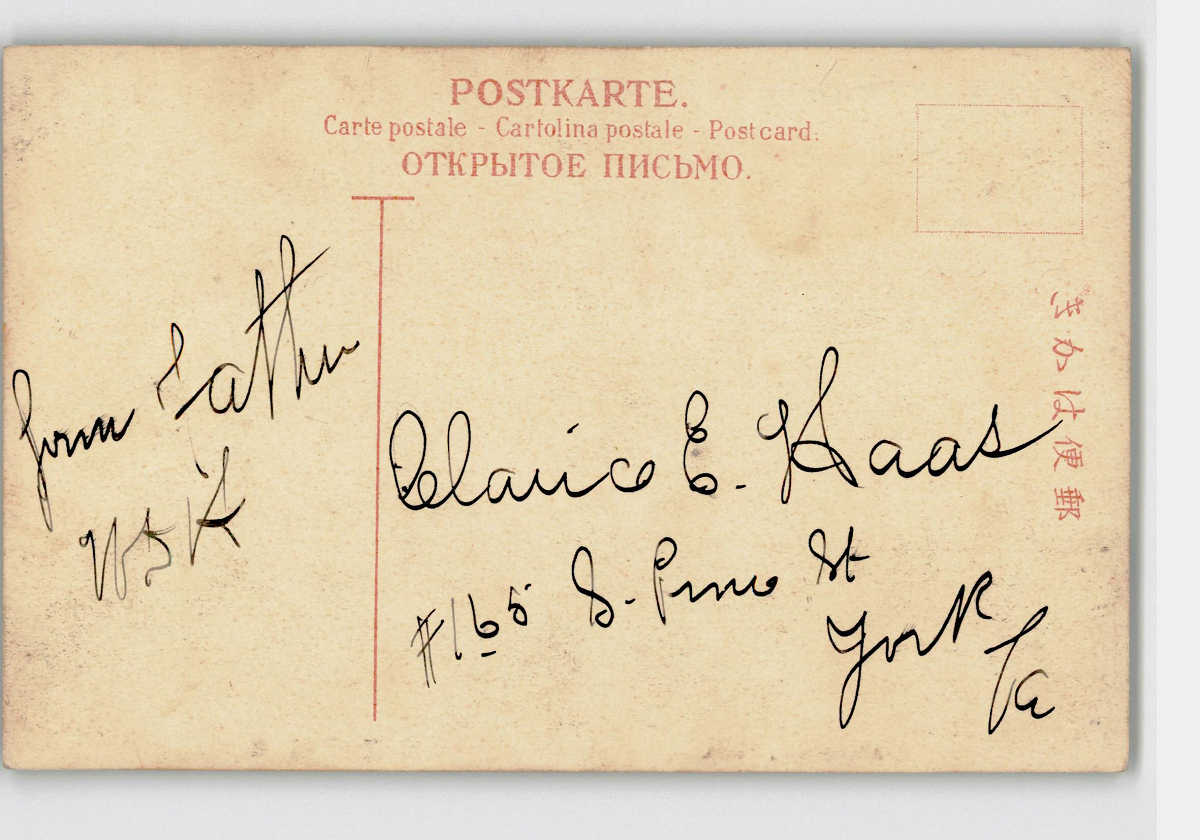 POSTKARTE.
Carte postale - Cartolina postale - Post card.
ОТКРЫТОЕ ПИСЬМО.
きかは便郵
from Father
Clarice E. Haas
#165 S. Pine St
York
Pa